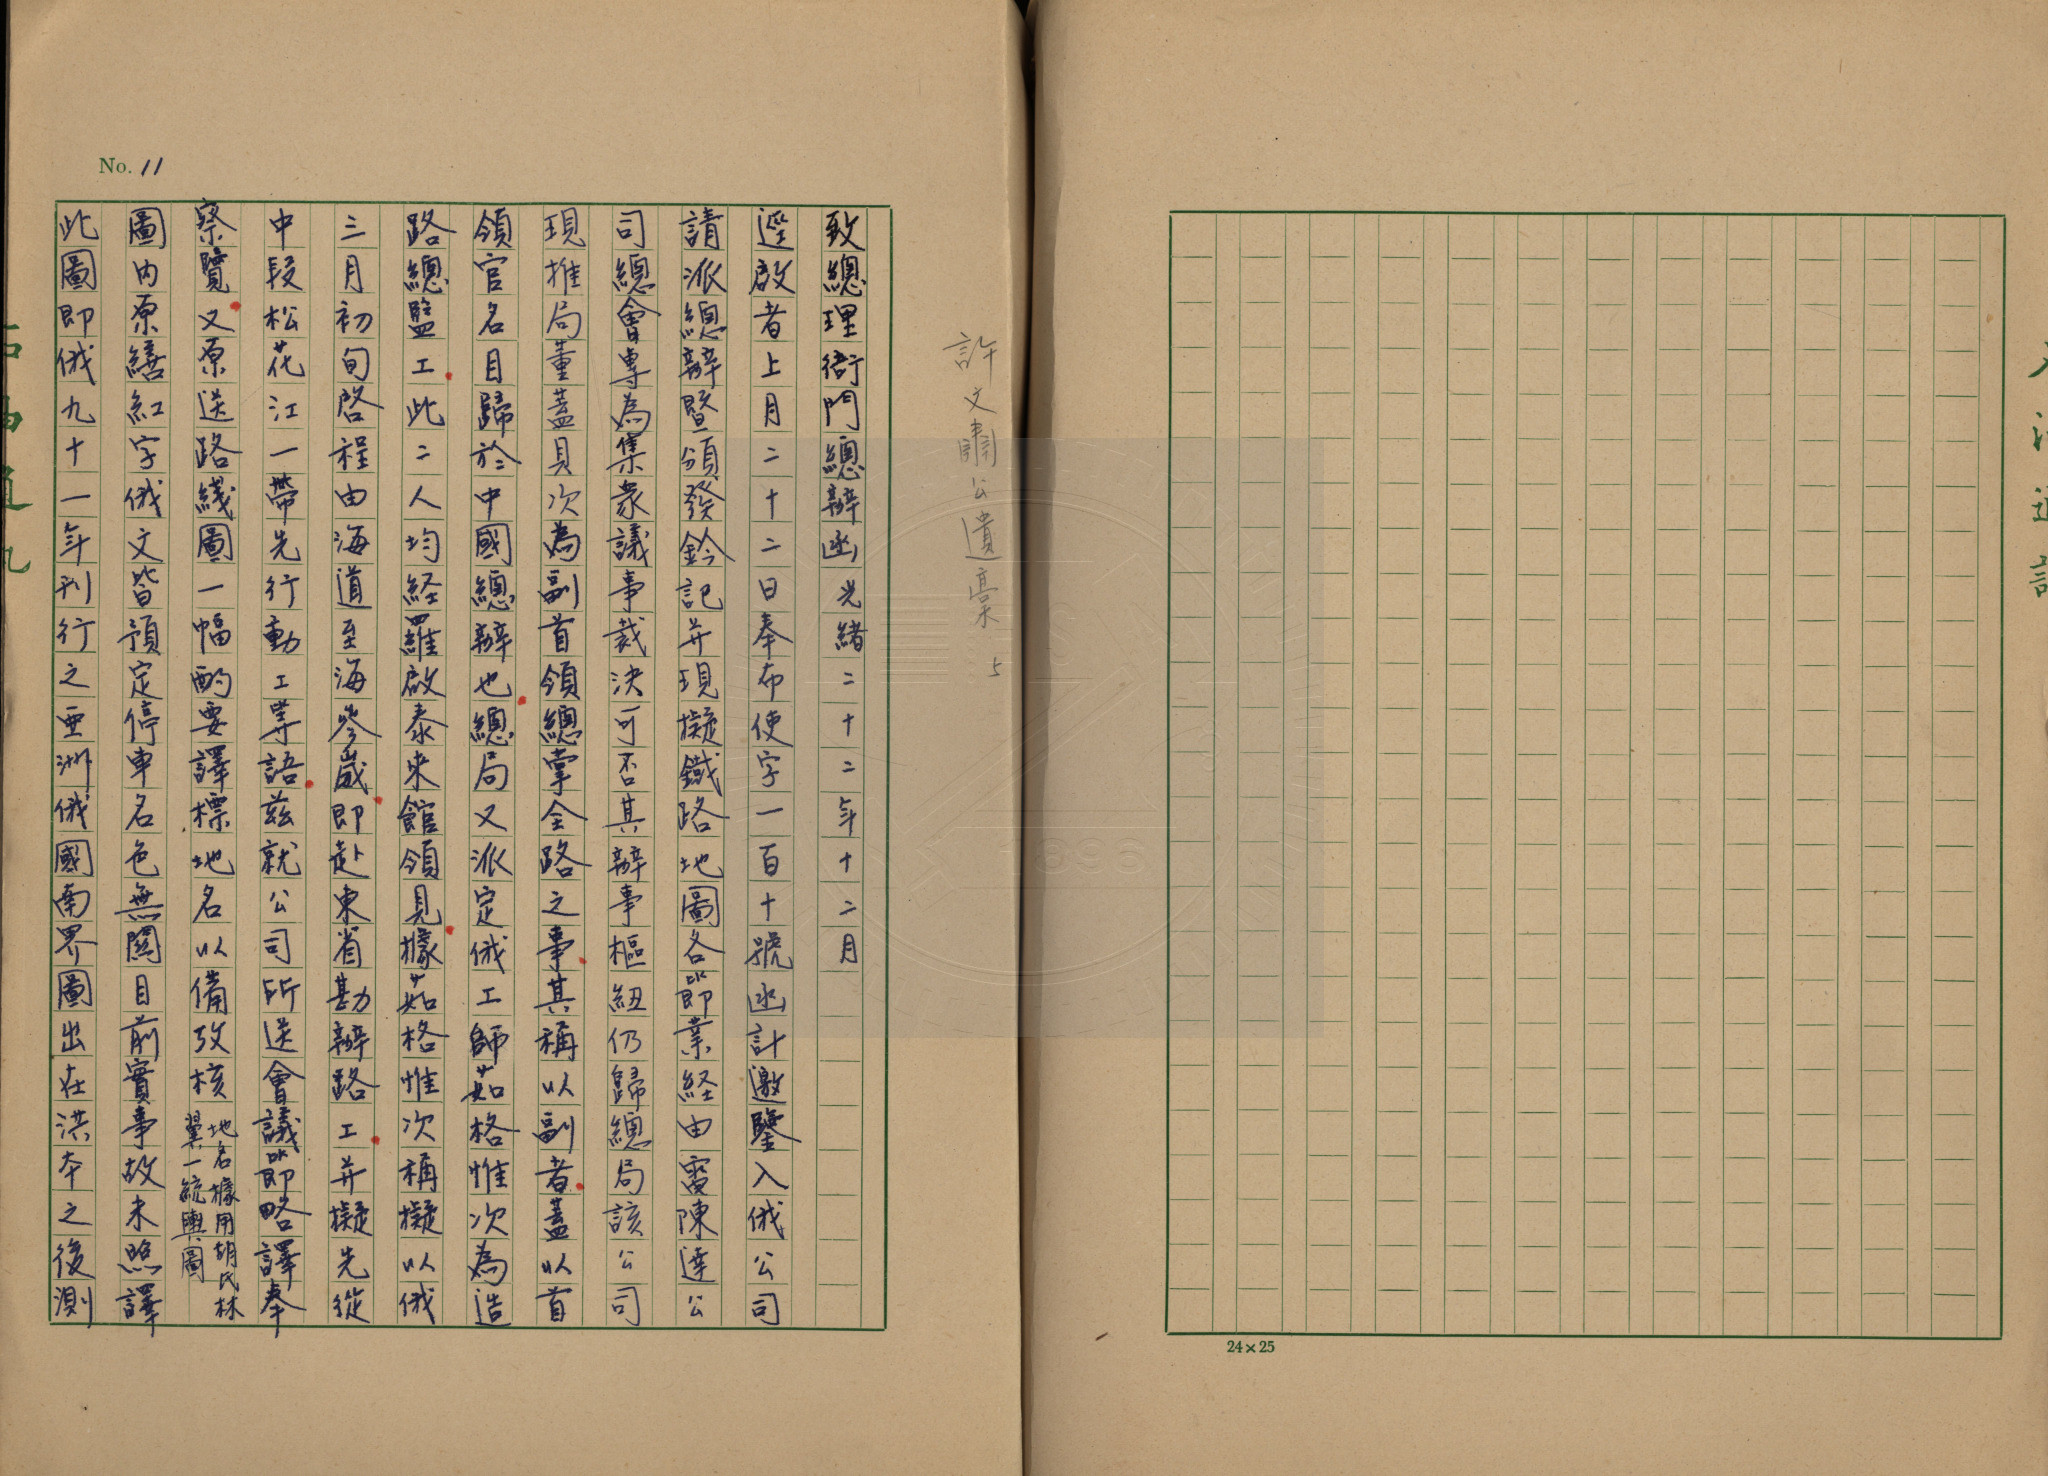 No. 11
許文肅公遺稾 5
致總理衙門總辦函 光緒二十二年十二月
逕啟者上月二十二日奉布使字一百十號函計邀鑒入俄公司
請派總辦暨頒發鈐記并現擬鐵路地圖各節業経由電陳達公
司總會專為集眾議事裁決可否其辦事樞紐仍歸總局該公司
現推局董蓋貝次為副首領總掌全路之事其稱以副者蓋以首
領官名目歸於中國總辦也總局又派定俄工師茹格惟次為造
路總監工此二人均経羅啟泰來館領見據茹格惟次稱擬以俄
三月初旬啓程由海道至海參崴即赴東省勘辦路工并擬先從
中段松花江一帶先行動工等語茲就公司所送會議節略譯奉
察覽又原送路綫圖一幅酌要譯標地名以備攷核 地名據用胡氏林翼一統輿圖
圖內原繕紅字俄文皆預定停車名色無關目前實事故未照譯
此圖即俄九十一年刊行之亞洲俄國南界圖出在洪本之後測
24×25